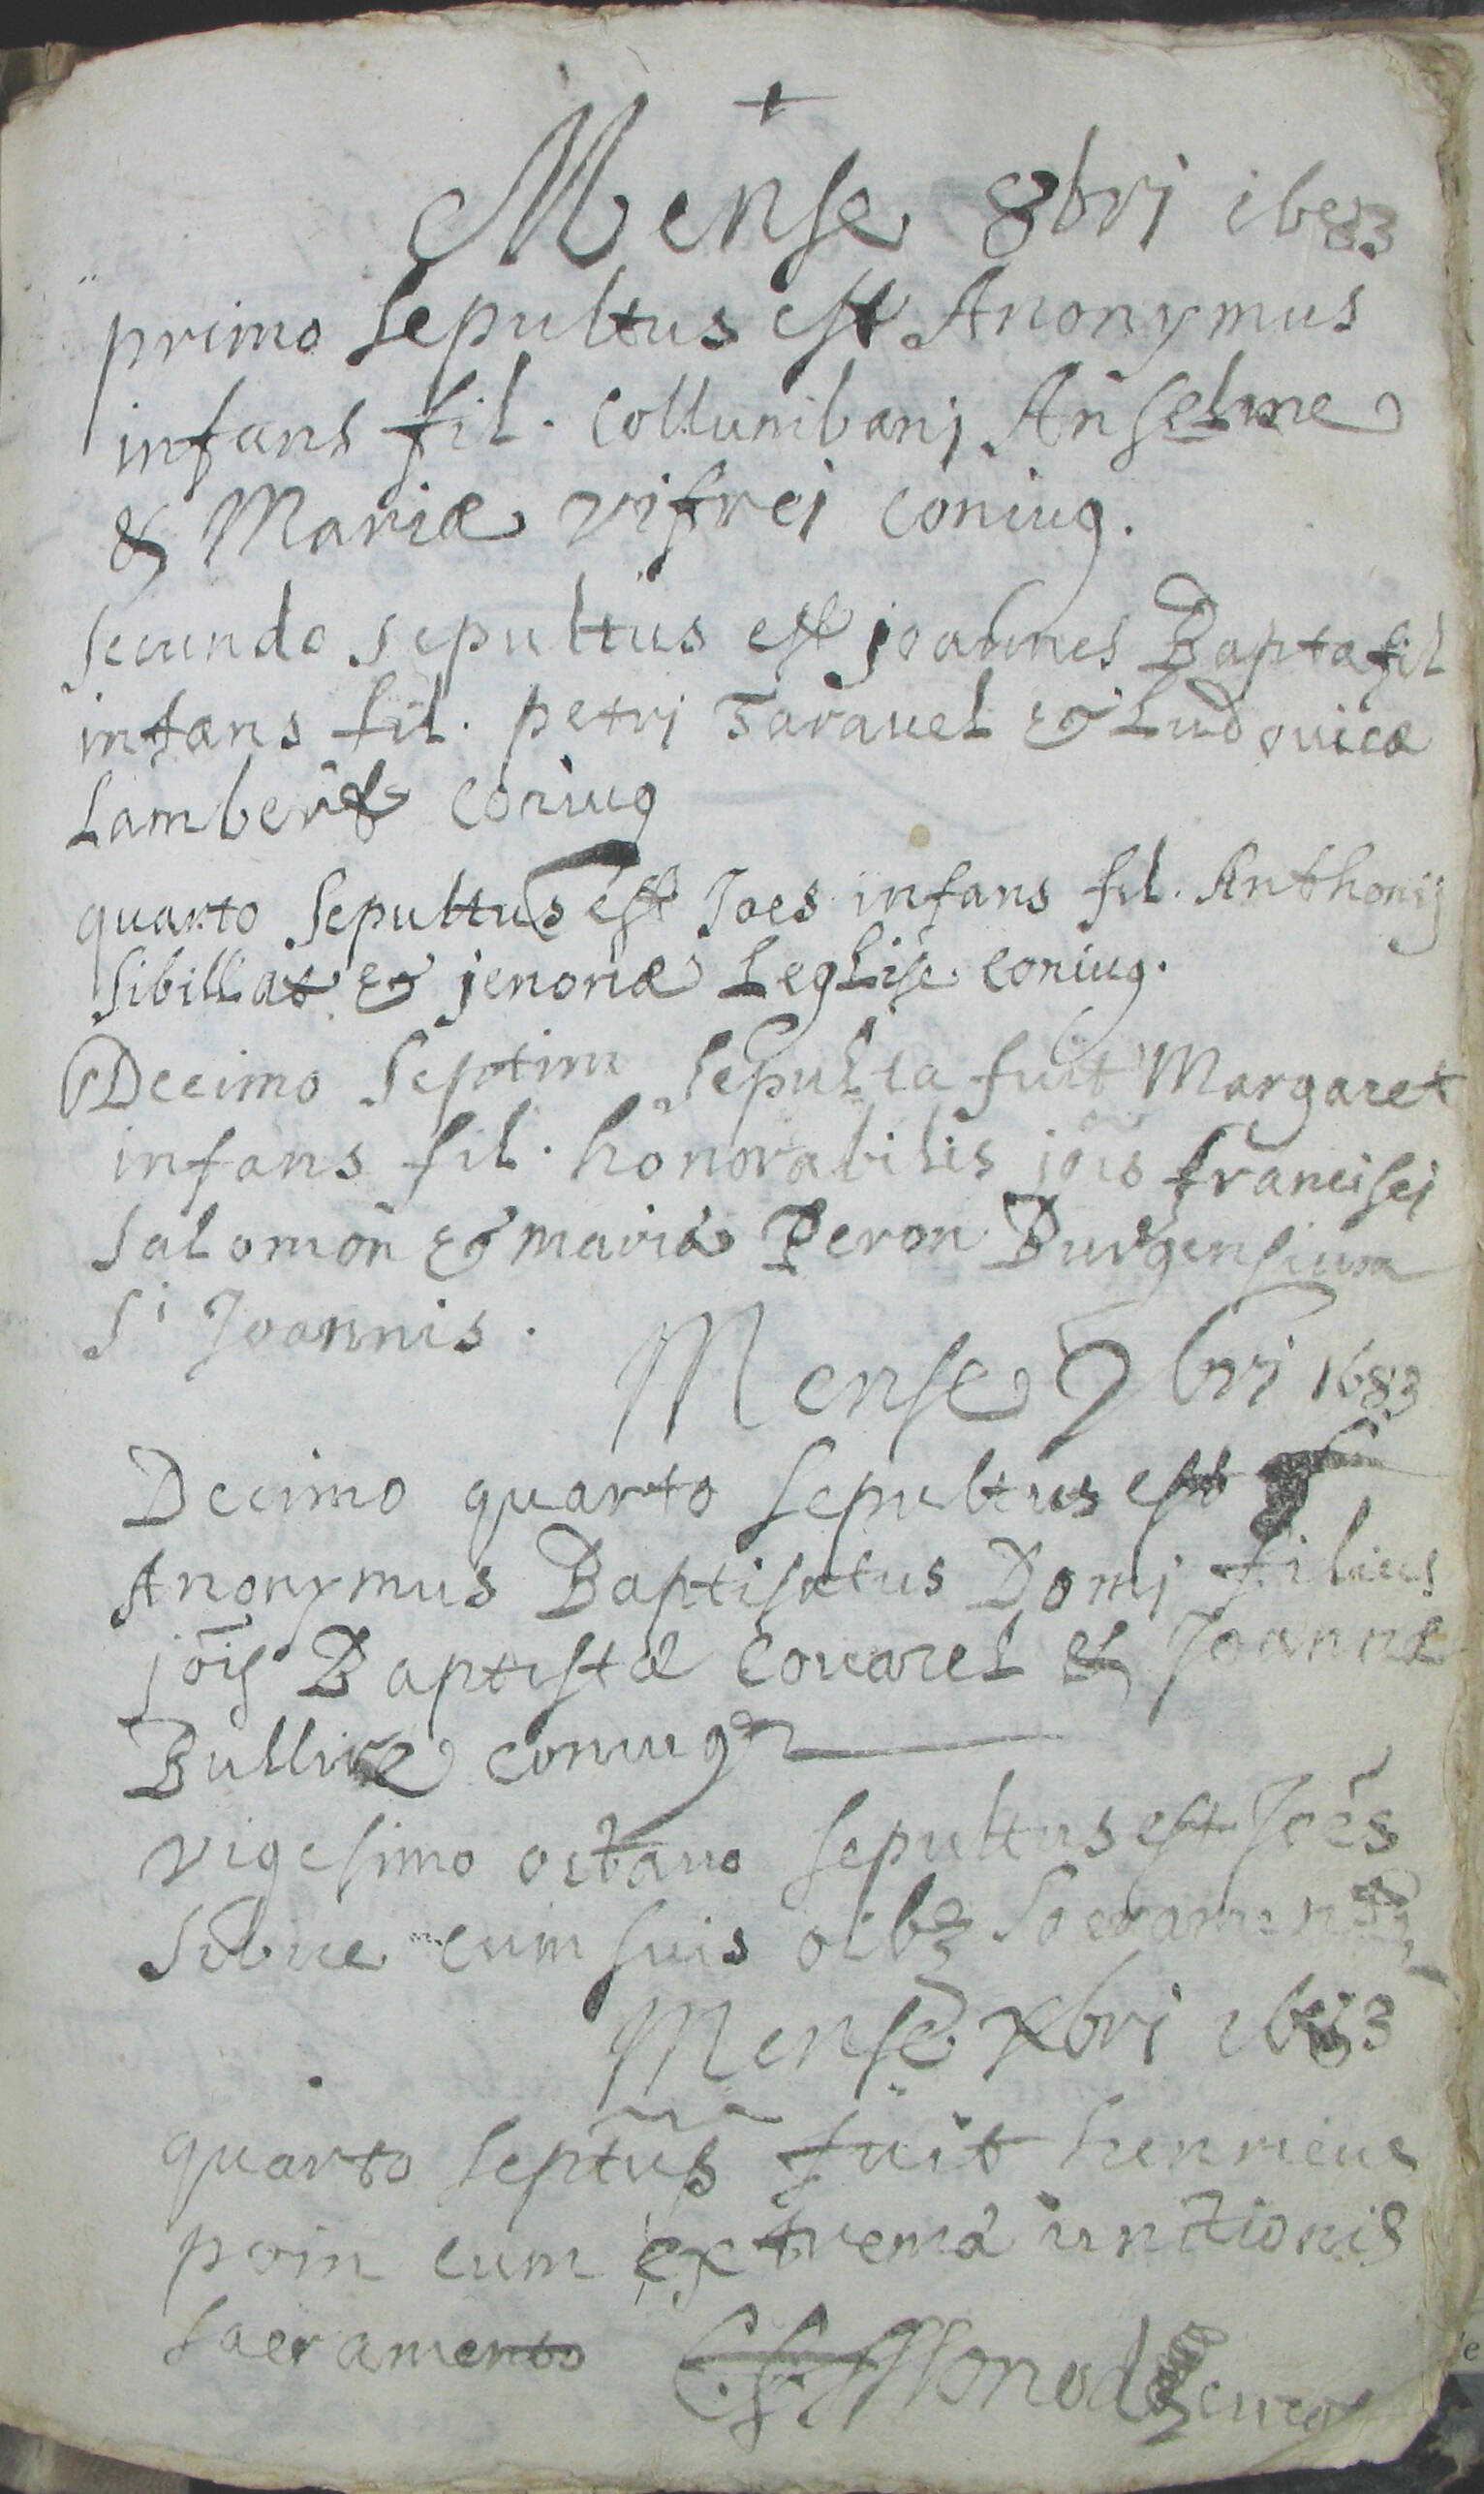 +
Mense 8bri 1683
primo Sepultus est Anonymus
infans fil. Collumbanj Anselme
& Mariæ vifrej coniug.
secundo sepultus est joannes Bapta fil
infans fil. petrj Taravel & Ludovicæ
Lambert coniug
quarto Sepultus est Joes infans fil. Anthonij
Sibillat & jenonæ Leglise coniug.
Decimo Septim Sepulta fuit Margaret
infans fil. honorabilis jois francisci
Salomon & mariæ Peron Burgensium
Si Joannis.
Mense 9bri 1683
Decimo quarto Sepultus est
Anonymus Baptisatus Domj filius
jois Baptistæ Covarel et Joannæ
coniug
vigesimo octavo sepultus est Joes
cum suis oibz Sacramentis
Mense xbri 1683
quarto septus fuit henricus
poin cum extrema unctionis
sacramento